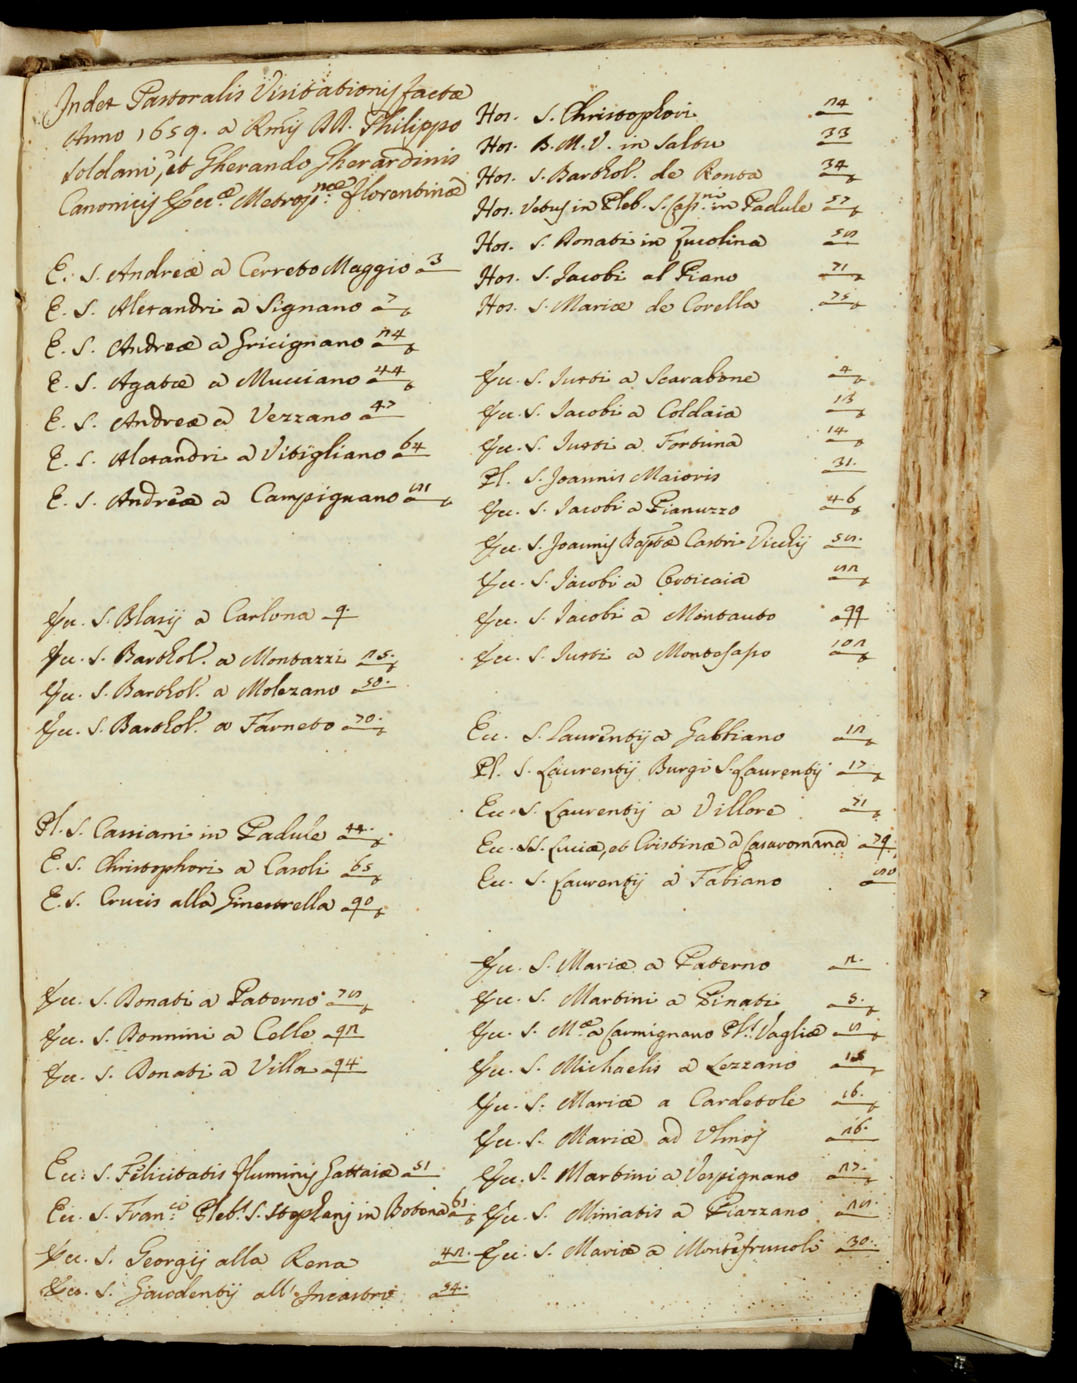 Index Pastoralis Visitationis factæ
Anno 1659. a Rmis DD. Philippo
Soldani, et Gherando Gherardinis
Canonicis Ecc.æ Metrop.næ florentinæ
E. S. Andreæ a Cerreto Maggio a 3
E. S. Alexandri a Signano a 7
E. S. Andreæ a Gricignano a 24
E. S. Agatæ a Mucciano a 44
E. S. Andreæ a Vezzano a 47
E. S. Alexandri a Vitigliano a 64
E. S. Andreæ a Campignano a
Ecc. S. Blasij a Carlona a 9.
Ecc. S. Barthol. a Montazzi a 25.
Ecc. S. Barthol. a Molezano a 50.
Ecc. S. Barthol. a Farneto a 70.
Pl. S. Cassiani in Padule a 44.
E. S. Christophori a Casoli a 65
E. S. Crucis alla Ginestrella a 90
Ecc. S. Donati a Paterno a
Ecc. S. Donnini a Celle a 92
Ecc. S. Donati a Villa a 94
Ecc. S. Felicitatis fluminis Gattaiæ a 51
Ecc. S. Fran.ci Pleb. S. Stephani in Botena a 61
Ecc. S. Georgij alla Rena a 42.
Ecc. S. Gaudentij all' Incastro a 54.
Hos. S. Christophori a 24
Hos. B. M. V. in Saltu 33
Hos. S. Barthol. de Ronta 34
Hos. Vetus in Pleb. S. Cass.ni in Padule 57
Hos. S. Donati in Lucolina
Hos. S. Jacobi al Piano 71
Hos. S. Mariæ de Corella 75.
Ecc. S. Iusti a Scarabone a 4
Ecc. S. Iacobi a Coldaia a 13
Ecc. S. Iusti a Fortuna a 14.
Pl. S. Joannis Maioris a 31.
Ecc. S. Iacobi a Pianuzzo a 46
Ecc. S. Joannis Baptæ Castri Vicchij
Ecc. S. Iacobi a Corticaia
Ecc. S. Iacobi a Montauto a 99
Ecc. S. Iusti a Montesasso a 102
Ecc. S. Laurentij a Gabbiano a 12
Pl. S. Laurentij Burgi S. Laurentij a 17
Ecc. S. Laurentij a Villore a 71
Ecc. SS. Luciæ, et Cristinæ a Casaromana a 79.
Ecc. S. Laurentij a Fabiano
Ecc. S. Mariæ a Paterno a 2.
Ecc. S. Martini a Pinati a 5.
Ecc. S. M.æ a Carmignano Pl. Vagliæ a
Ecc. S. Michaelis a Lezzano a
Ecc. S. Mariæ a Cardetole a 16.
Ecc. S. Mariæ ad Vlmos a 26.
Ecc. S. Martini a Vespignano a 27.
Ecc. S. Miniatis a Piazzano a
Ecc. S. Mariæ a Montefiesoli a 30.